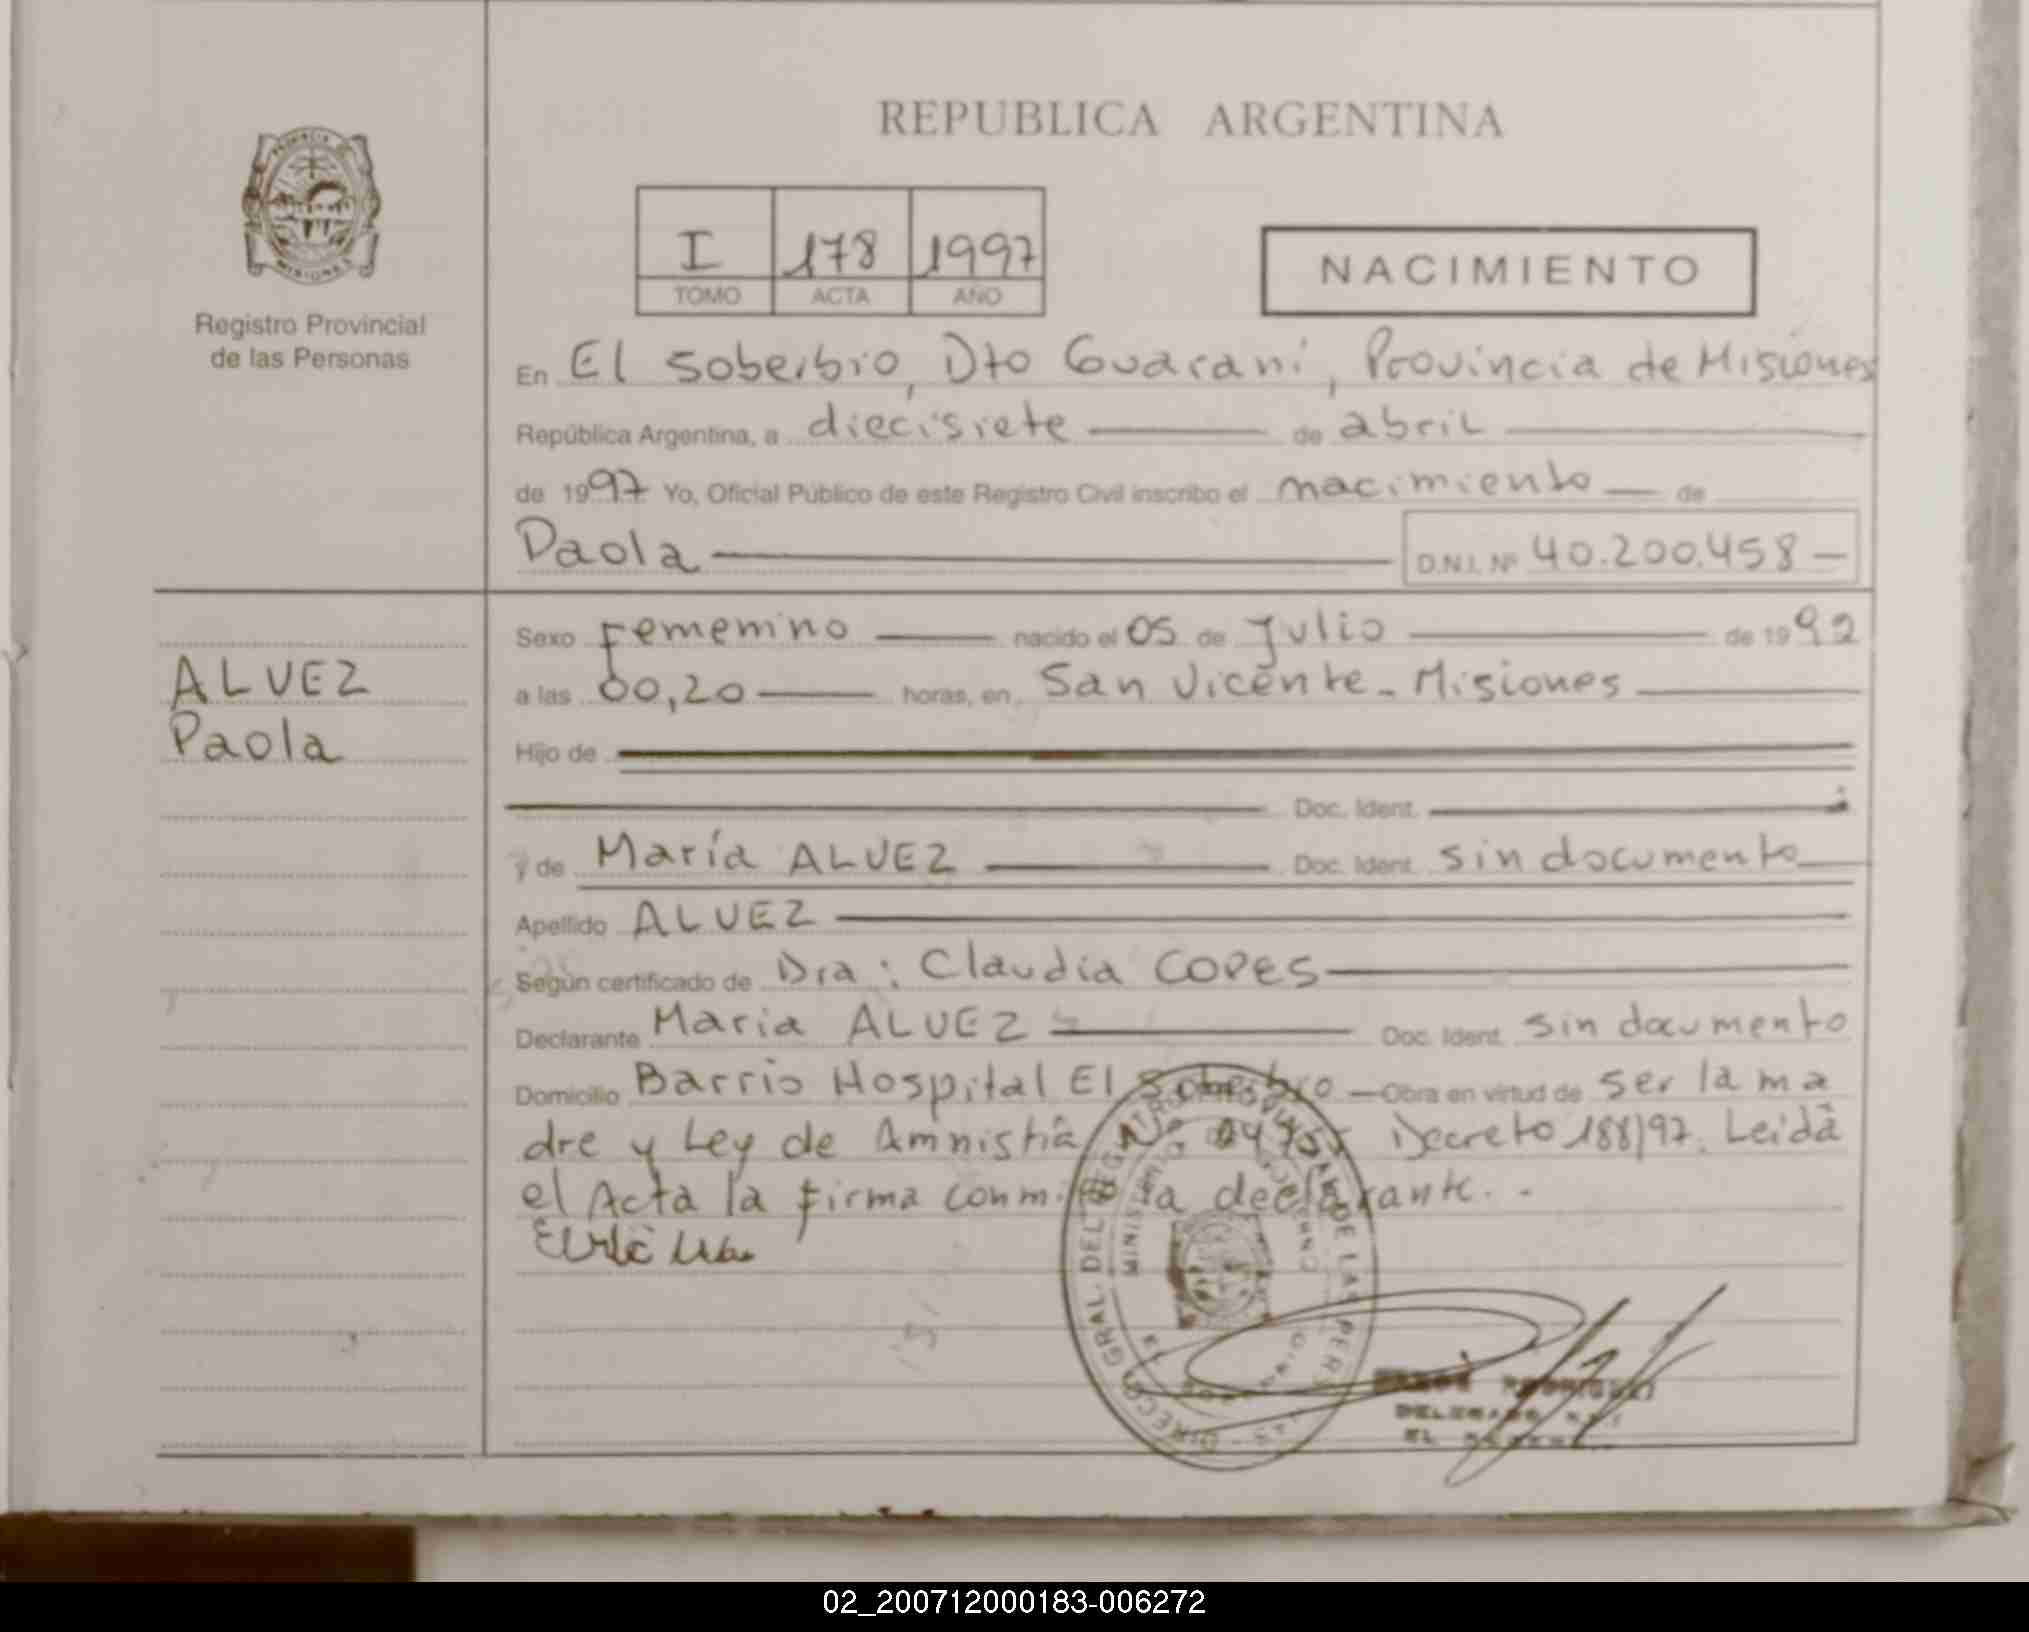 REPUBLICA ARGENTINA
PROVINCIA DE
MISIONES
Registro Provincial
de las Personas
I 178 1997
TOMO ACTA AÑO
NACIMIENTO
En El Soberbio, Dto Guaraní, Provincia de Misiones
República Argentina, a diecisiete de abril
de 1997 Yo, Oficial Público de este Registro Civil inscribo el nacimiento de
Paola D.N.I. Nº 40.200.458
ALVEZ
Paola
Sexo Femenino nacido el 05 de Julio de 1992
a las 00,20 horas, en San Vicente - Misiones
Hijo de
Doc. Ident.
y de María ALVEZ Doc. Ident. sin documento
Apellido ALVEZ
Según certificado de Dra: Claudia COPES
Declarante Maria ALVEZ Doc. Ident. sin documento
Domicilio Barrio Hospital El Soberbio Obra en virtud de ser la ma
dre y Ley de Amnistía Nº Decreto 188/97. Leida
el Acta la firma conmigo la declarante. -
DIRECCION GRAL. DEL REGISTRO PROVINCIAL DE LAS PERS
MINISTERIO DE GOBIERNO
RODRIGUEZ
DELEGADO
EL
02_200712000183-006272